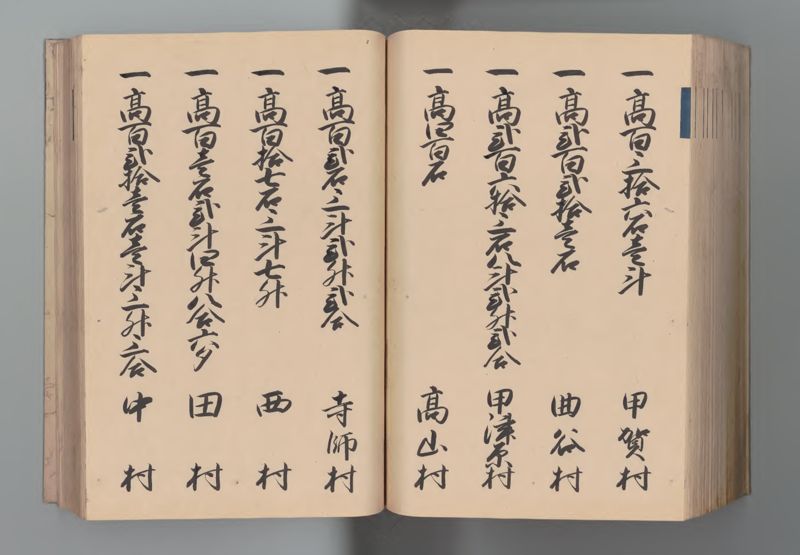 一髙百三拾六石壱斗 甲賀村
一髙弐百弐拾壱石 曲谷村
一髙弐百六拾三石八斗弐升弐合 甲津原村
一髙四百石 髙山村
一髙百弐石三斗弐升弐合 寺師村
一髙百拾七石三斗七升 西村
一髙百壱石弐斗四升八合六夕 田村
一髙百弐拾壱石壱斗三升三合 中村